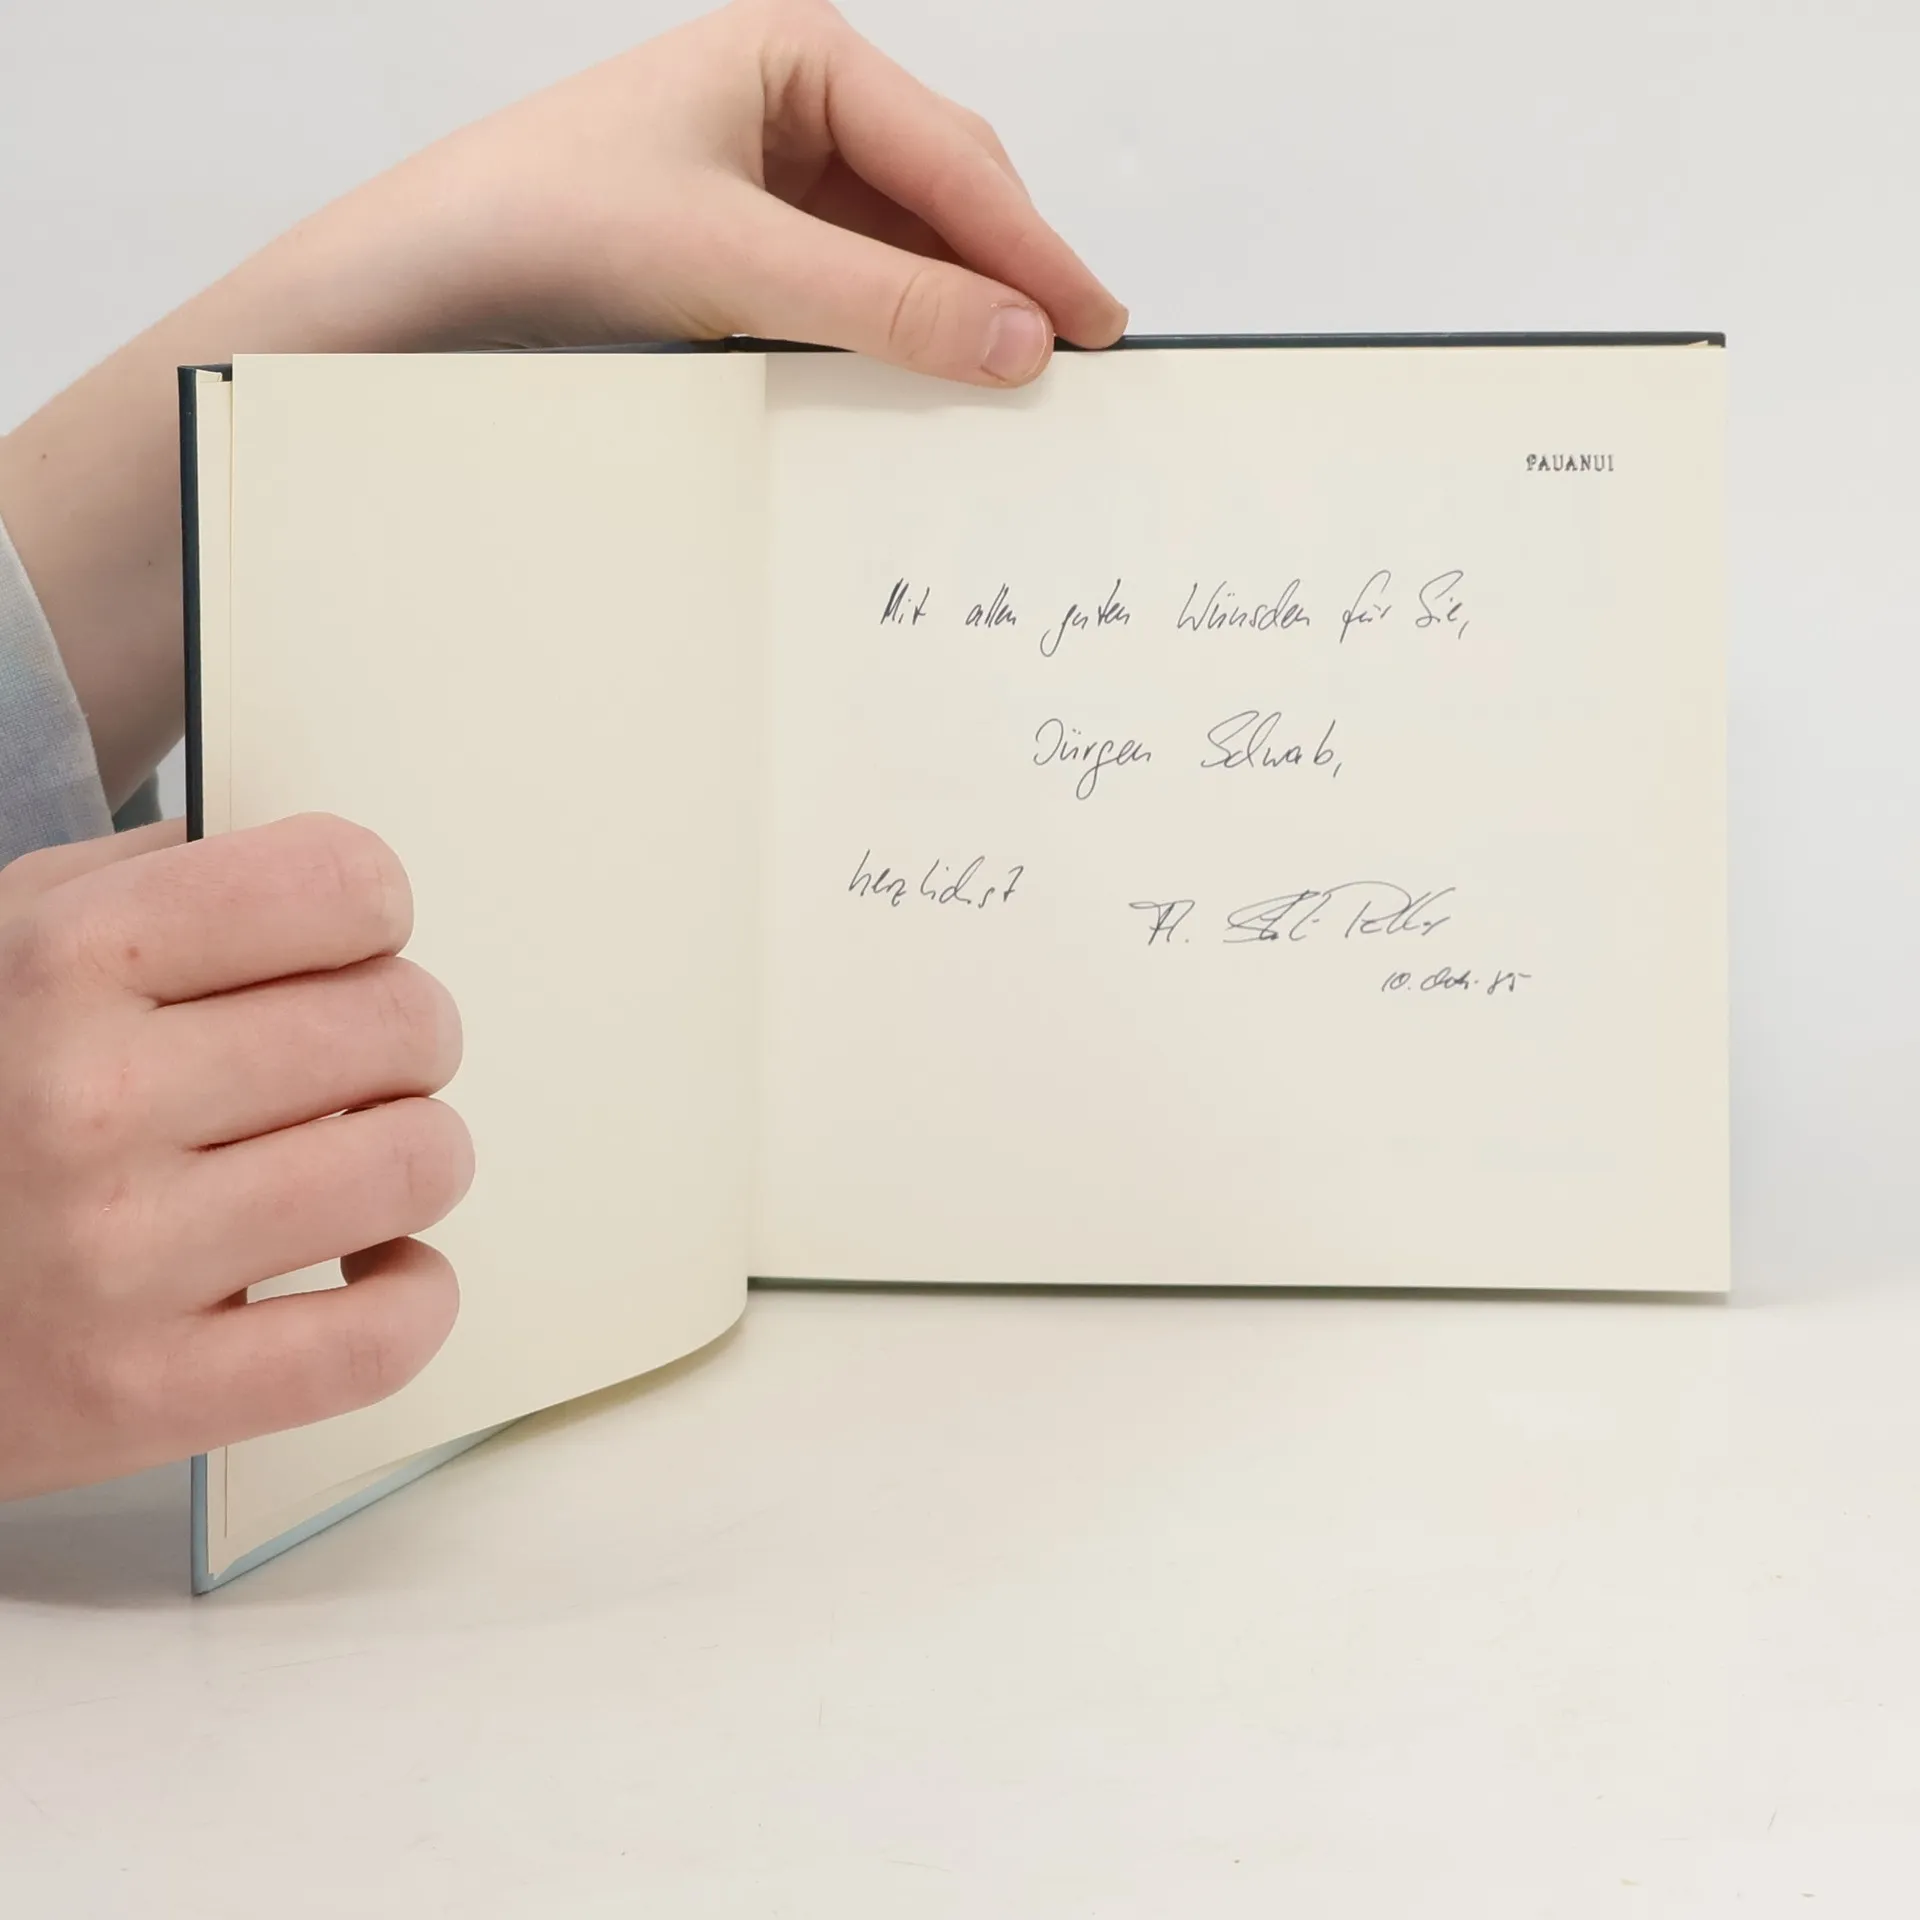 PAUANUI
Mit allen guten Wünschen für Sie,
Jürgen Schwab,
herzlichst
10. Okt. 85